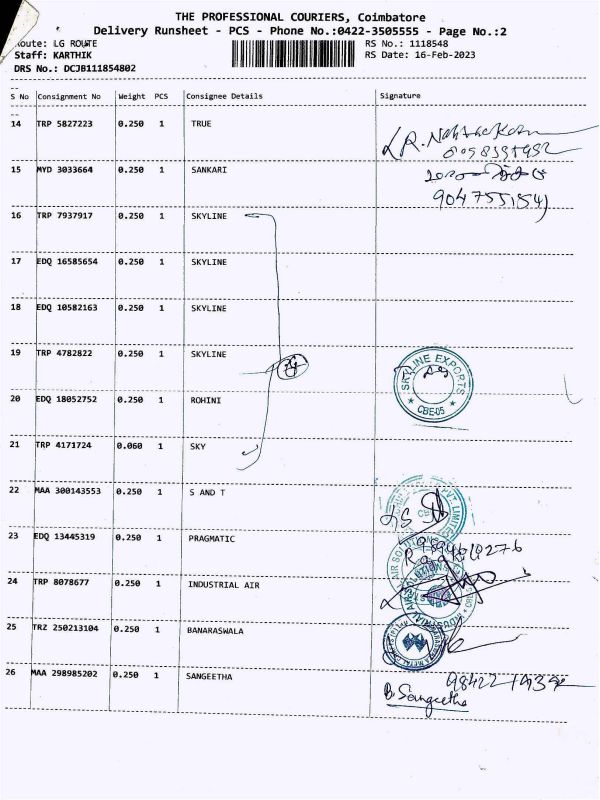 THE PROFESSIONAL COURIERS, Coimbatore
Delivery Runsheet - PCS - Phone No.:0422-3505555 - Page No.:2
Route: LG ROUTE RS No.: 1118548
Staff: KARTHIK RS Date: 16-Feb-2023
DRS No.: DCJB111854802
S No Consignment No Weight PCS Consignee Details Signature
14 TRP 5827223 0.250 1 TRUE
15 MYD 3033664 0.250 1 SANKARI
9047551541
16 TRP 7937917 0.250 1 SKYLINE
17 EDQ 16585654 0.250 1 SKYLINE
18 EDQ 10582163 0.250 1 SKYLINE
19 TRP 4782822 0.250 1 SKYLINE
SKYLINE EXPORTS
* CBE-05 *
20 EDQ 18052752 0.250 1 ROHINI
21 TRP 4171724 0.060 1 SKY
22 MAA 300143553 0.250 1 S AND T
23 EDQ 13445319 0.250 1 PRAGMATIC
24 TRP 8078677 0.250 1 INDUSTRIAL AIR
25 TRZ 250213104 0.250 1 BANARASWALA
26 MAA 298985202 0.250 1 SANGEETHA
B. Sangeetha